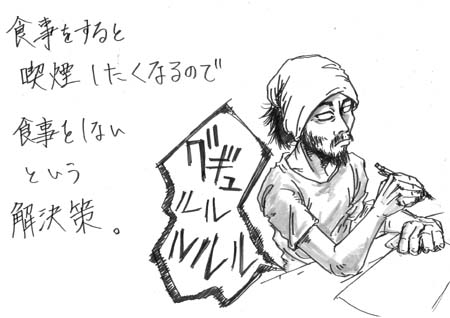 食事をすると
喫煙したくなるので
食事をしない
という
解決策。
グギュ
ルルル
ルルル